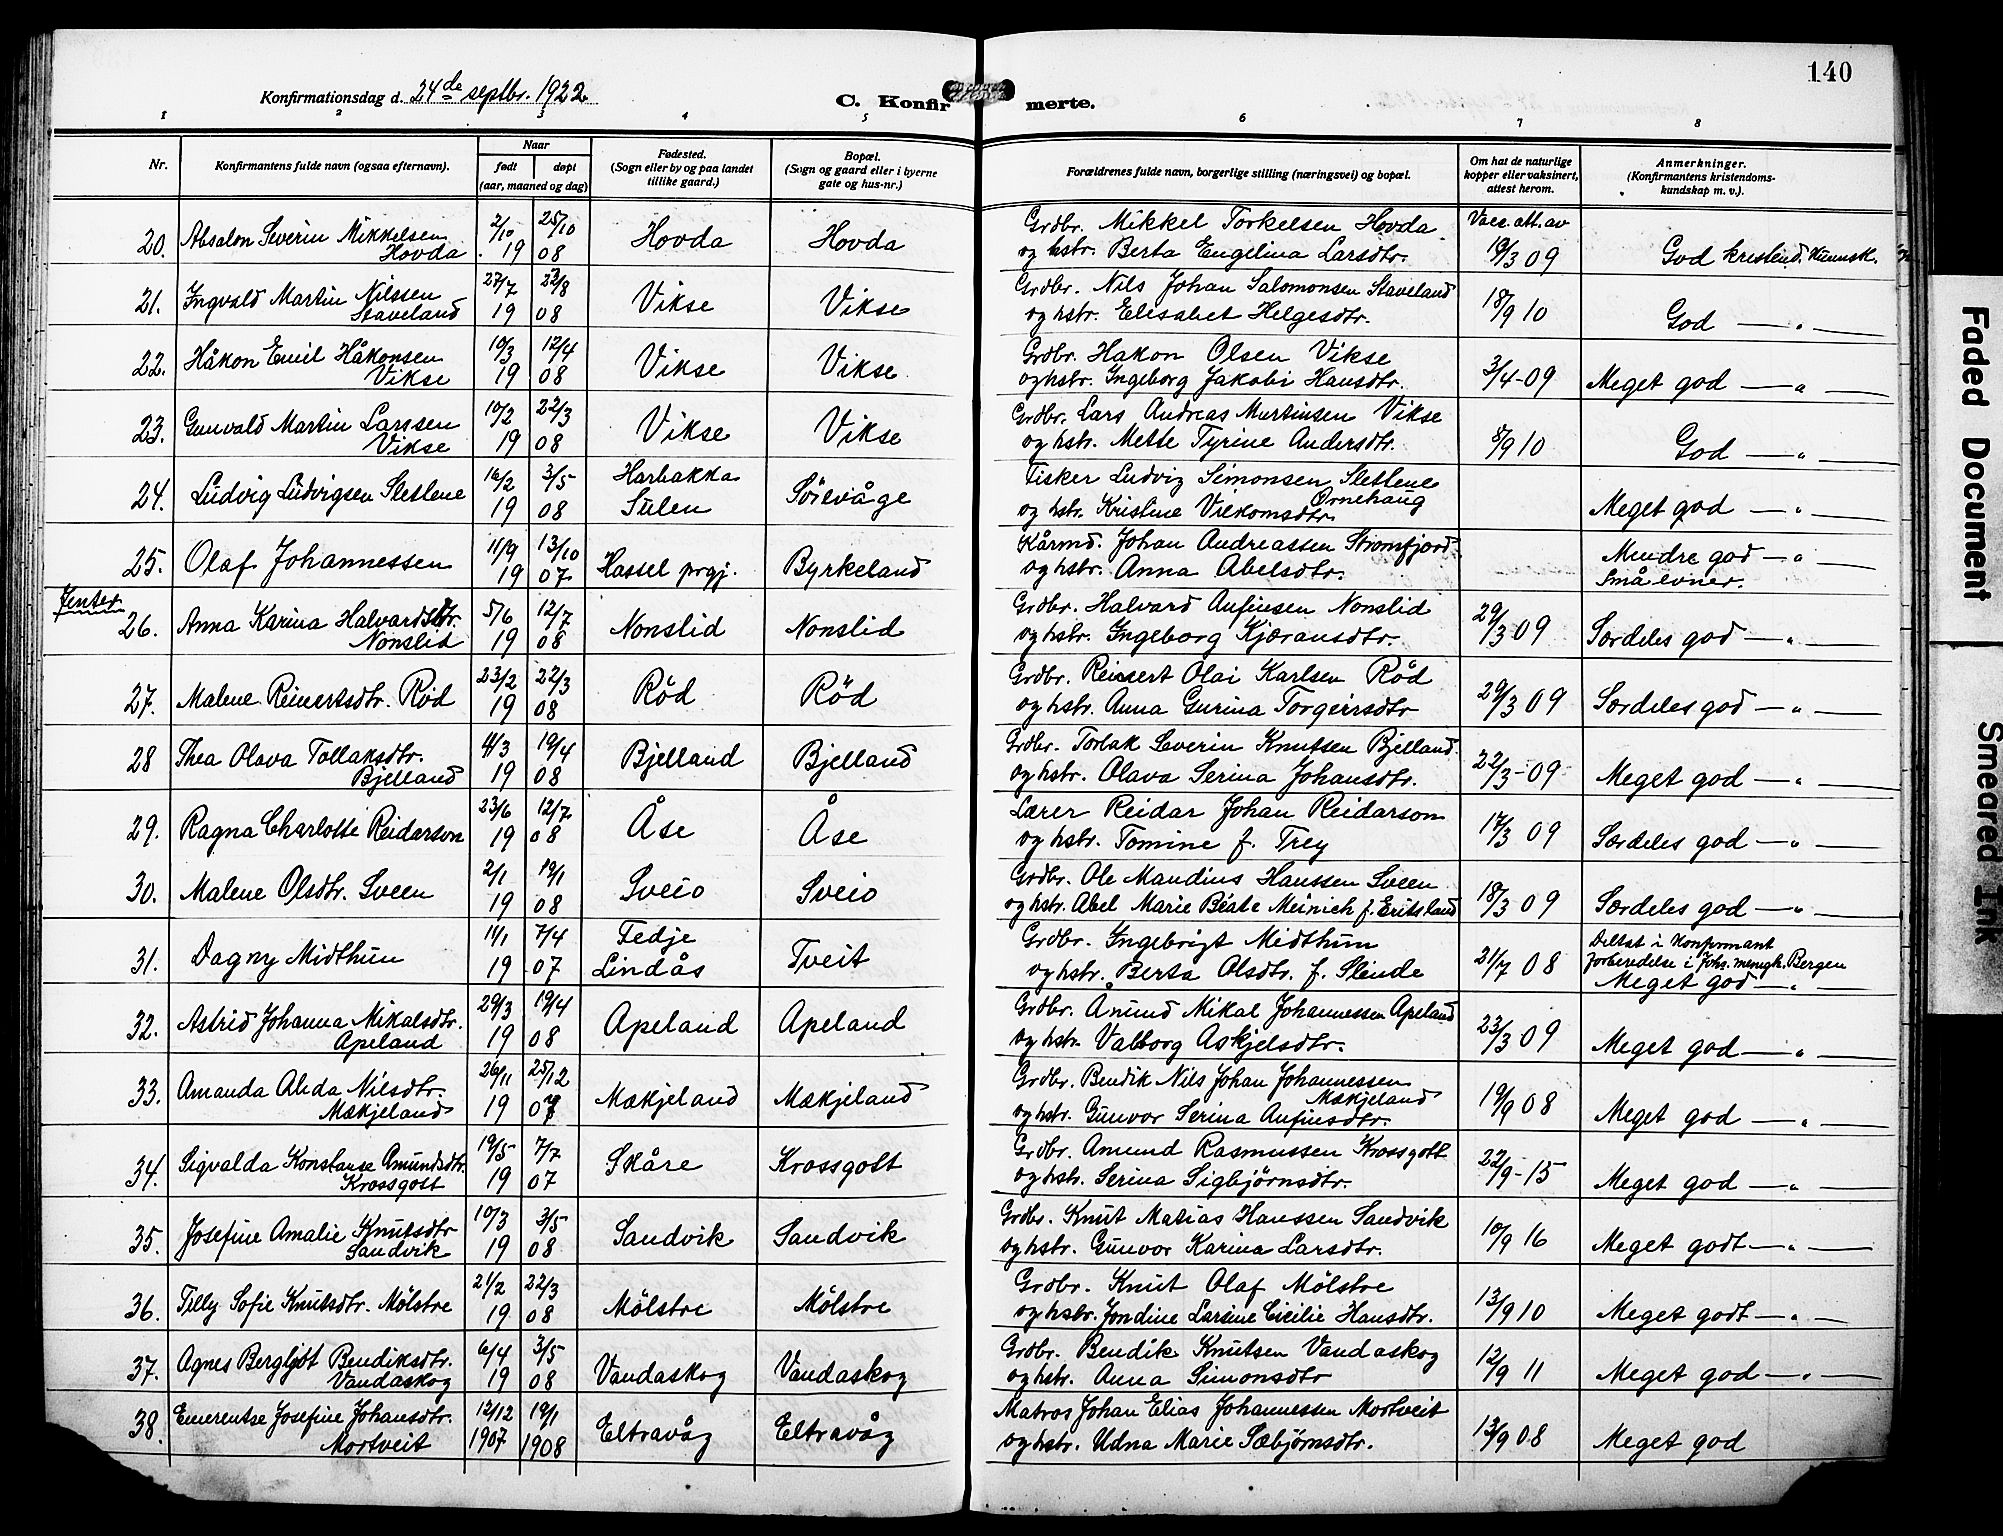 140
Konfirmationsdag d. 24de septbr. 1922
C. Konfirmerte.
1 2 3 4 5 6 7 8
Nr. Konfirmantens fulde navn (ogsaa efternavn). Naar født døpt (aar, maaned og dag) Fødested. (Sogn eller by og paa landet tillike gaard.) Bopæl. (Sogn og gaard eller i byerne gate og hus-nr.) Forældrenes fulde navn, borgerlige stilling (næringsvei) og bopæl. Om hat de naturlige kopper eller vaksinert, attest herom. Anmerkninger. (Konfirmantens kristendoms-kundskap m. v.).
20. Absalon Severin Mikkelsen 2/10 25/10 Hovda Hovda Grdbr. Mikkel Torkelsen Hovda Vacc. att. av
Hovda 19 08 og hstr. Berta Engelina Larsdtr. 18/3 09 God kristend. kunnsk.
21. Ingvald Martin Nilssen 27/7 23/8 Vikse Vikse Grdbr. Nils Johan Salomonsen Staveland
Staveland 19 08 og hstr. Elisabet Helgesdtr. 18/9 10 God — " —
22. Håkon Emil Håkonsen 10/3 12/4 Vikse Vikse Grdbr. Hakon Olsen Vikse
Vikse 19 08 og hstr. Ingeborg Jakobi Hansdtr. 3/4-09 Meget god — " —
23. Gunvald Martin Larssen 10/2 22/3 Vikse Vikse Grdbr. Lars Andreas Martinsen Vikse
Vikse 19 08 og hstr. Mette Tyrine Andersdtr. 8/9 10 God — " —
24. Ludvig Ludvigsen Sletlene 16/2 3/5 Harbakka Sörevåge Fisker Ludvig Simonsen Sletlene
19 08 Sulen og hstr. Kristine Vilkomsdtr. Ornehaug Meget god — " —
25. Olaf Johannessen 11/9 13/10 Hassel prgj. Byrkeland Kårmd. Johan Andreassen Strømfjord Mindre god — " —
19 07 og hstr. Anna Abelsdtr. Små evner.
Jenter
26. Anna Karina Halvardsdtr. 5/6 12/7 Nonslid Nonslid Grdbr. Halvard Anfinsen Nonslid
Nonslid 19 08 og hstr. Ingeborg Kjæransdtr. 29/3 09 Særdeles god — " —
27. Malene Reinertsdtr. Röd 23/2 22/3 Röd Röd Grdbr. Reinert Olai Karlsen Röd
19 08 og hstr. Anna Gurina Torgeirsdtr 29/3 09 Særdeles god — " —
28 Thea Olava Tollaksdtr. 4/3 19/4 Bjelland Bjelland Grdbr. Torlak Severin Knutsen Bjelland
Bjelland 19 08 og hstr. Olava Serina Johansdtr. 22/3-09 Meget god — " —
29. Ragna Charlotte Reidarson 23/6 12/7 Åse Åse Lærer Reidar Johan Reidarson
19 08 og hstr. Tomine f. Trey 17/3 09 Særdeles god — " —
30. Malene Olsdtr. Sveen 2/1 19/1 Sveio Sveio Grdbr. Ole Mandius Hanssen Sveen
19 08 og hstr. Abel Marie Beate Meinich f. Eritsland 18/3 09 Særdeles god — " —
31. Dagny Midthun 14/1 7/4 Fedje Tveit Grdbr. Ingebrigt Midthun Deltat i konfirmant
19 07 Lindås og hstr. Berta Olsdtr. f. Slinde 21/7 08 forberedelse i Johs. menigh. Bergen
Meget god — " —
32. Astrid Johanna Mikalsdtr. 29/3 19/4 Apeland Apeland Grdbr. Ånund Mikal Johannessen Apeland
Apeland 19 08 og hstr. Valborg Askjelsdtr. 23/3 09 Meget god — " —
33. Amanda Alida Nilsdtr. 26/11 25/12 Mækjeland Mækjeland Grdbr. Bendik Nils Johan Johannessen
Mækjeland 19 07 og hstr. Gunvor Serina Anfinsdtr. Mækjeland 19/9 08 Meget god — " —
34. Sigvalda Konstanse Amundsdtr. 19/5 7/7 Skåre Krossgott Grdbr. Amund Rasmussen Krossgott
Krossgott 19 07 og hstr. Serina Sigbjørnsdtr. 22/9-15 Meget god — " —
35. Josefine Amalie Knutsdtr 10/3 3/5 Sandvik Sandvik Grdbr. Knut Matias Hanssen Sandvik
Sandvik 19 08 og hstr. Gunvor Karina Larsdtr. 10/9 16 Meget godt — " —
36. Tilly Sofie Knutsdtr. Mölstre 21/2 22/3 Mölstre Mölstre Grdbr. Knut Olaf Mölstre
19 08 og hstr. Jondine Larsine Cicilie Hansdtr. 13/9 10 Meget godt — " —
37. Agnes Bergljot Bendiksdtr. 6/4 3/5 Vandaskog Vandaskog Grdbr. Bendik Knutsen Vandaskog
Vandaskog 19 08 og hstr. Anna Simonsdtr 12/9 11 Meget god — " —
38. Emerentse Josefine Johansdtr. 12/12 19/1 Eltravåg Eltravåg Matros Johan Elias Johannessen Mortveit
Mortveit 1907 1908 og hstr. Udna Marie Sæbjørnsdtr. 13/9 08 Meget god
Faded Document
Smeared Ink